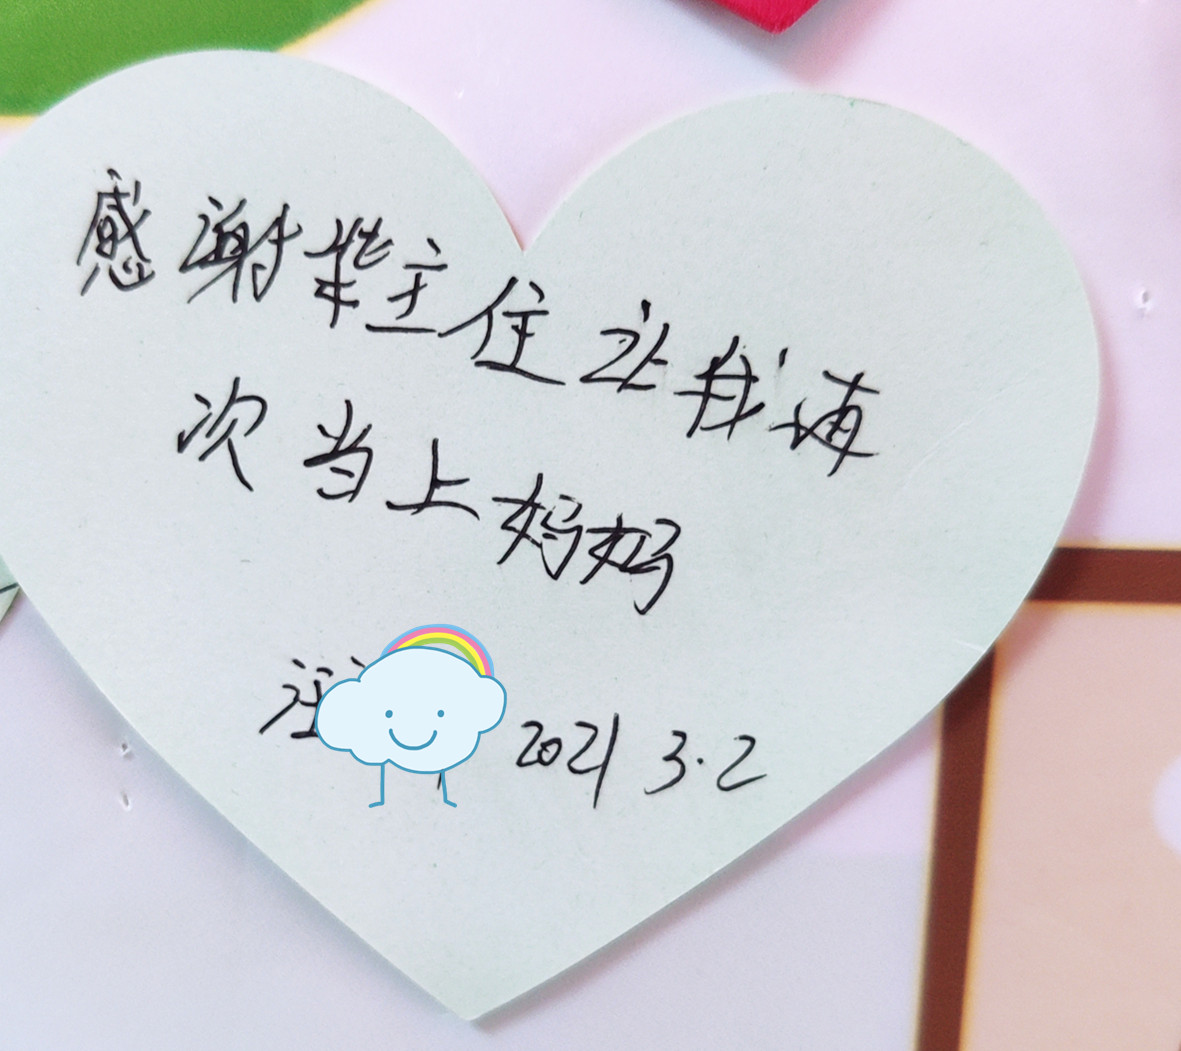 感谢柴主住让我再
次当上妈妈
2021 3.2